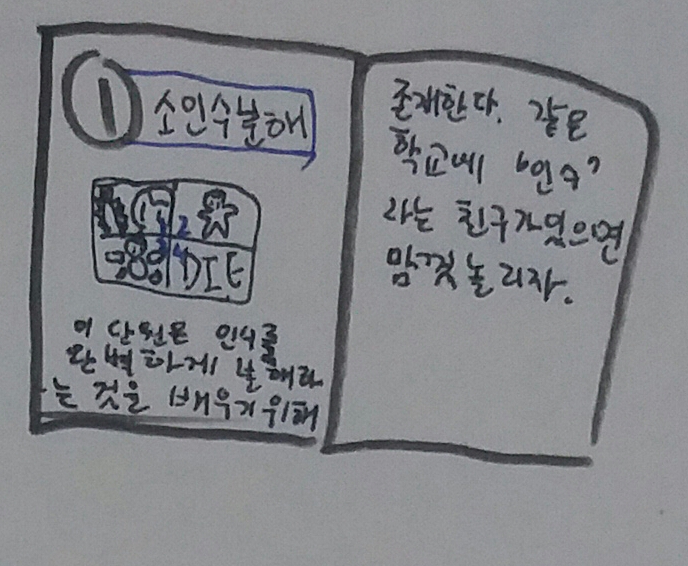 1 소인수분해
1 2
3 4 DIE
이 단원은 인수를
완벽하게 분해하
는 것을 배우기위해
존재한다. 같은
학교에 '인수'
라는 친구가있으면
맘껏놀리자.